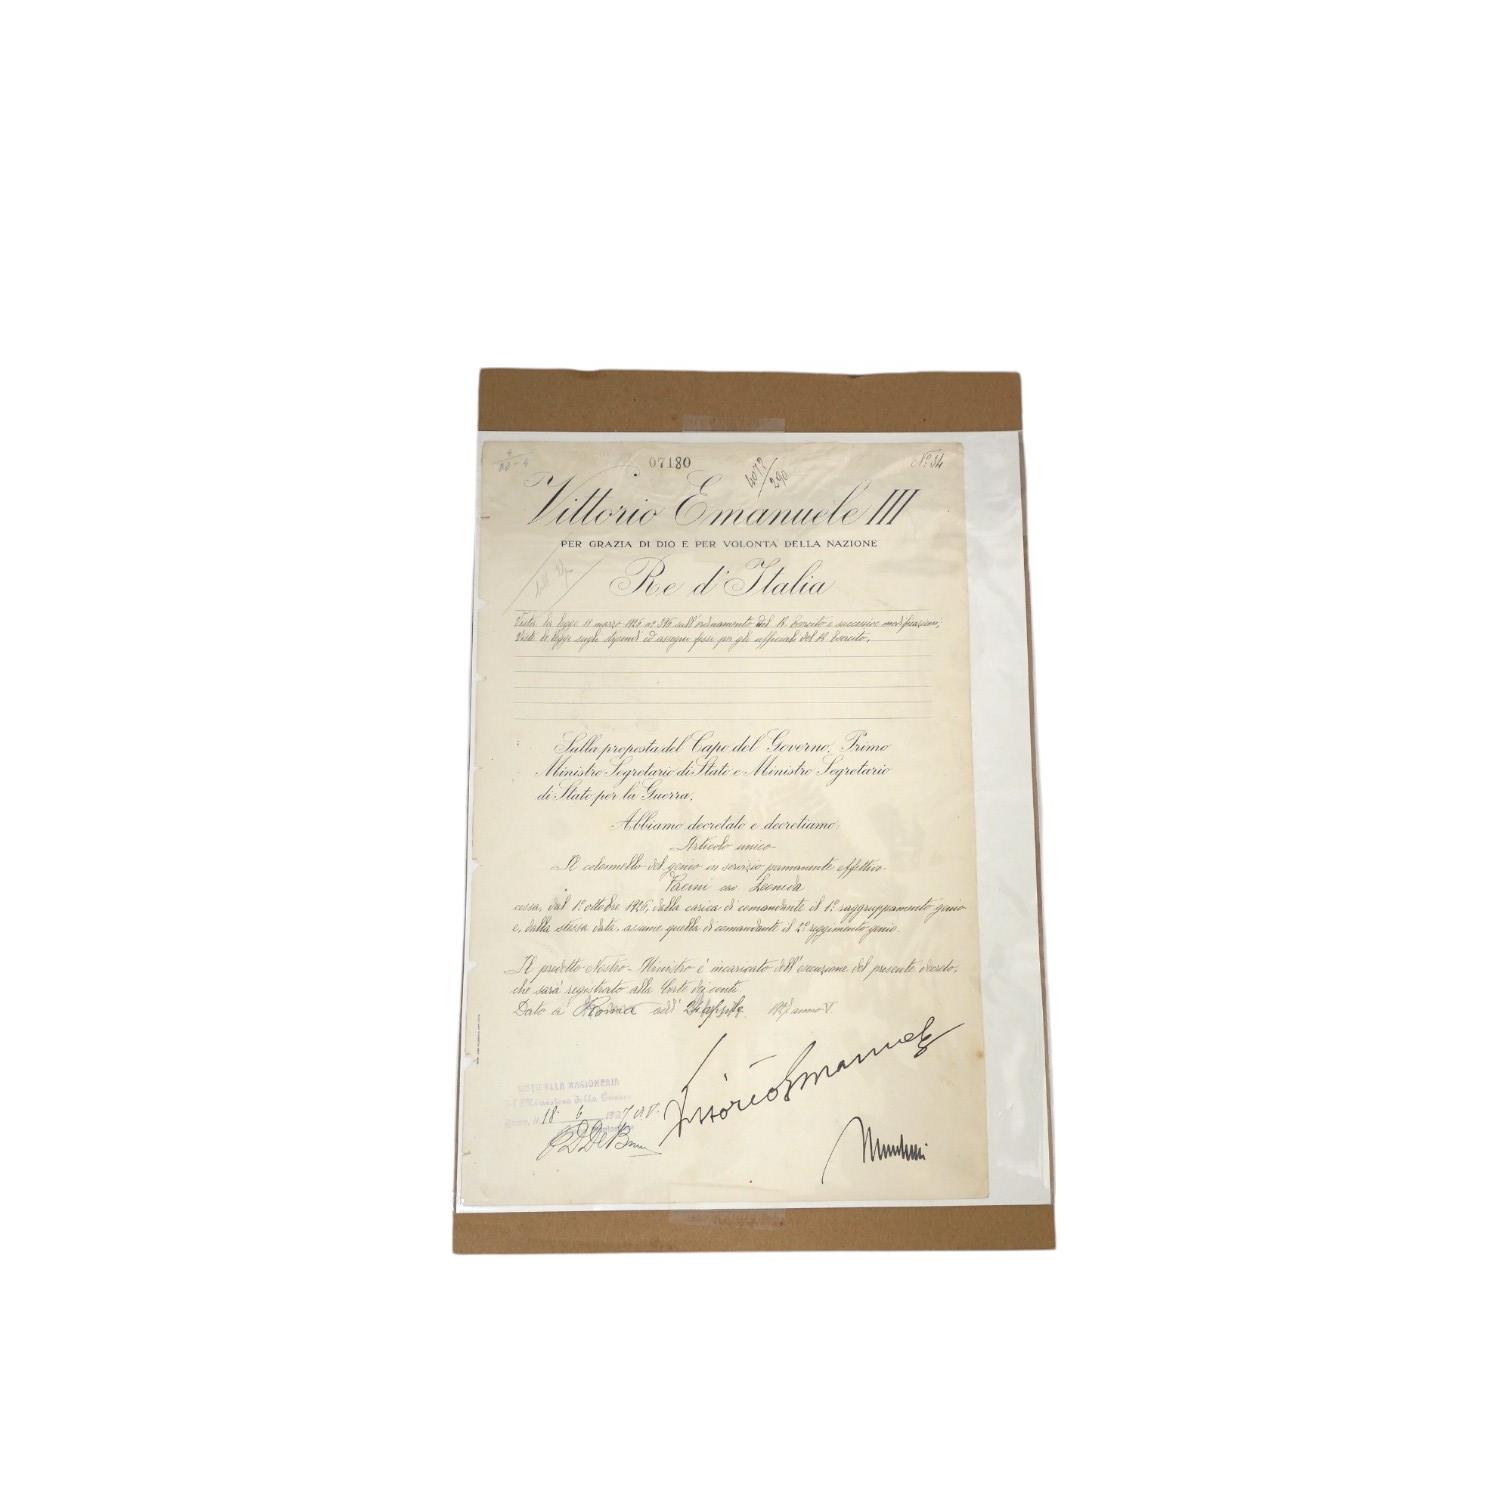 07180
4072/290
N° 34
Vittorio Emanuele III
PER GRAZIA DI DIO E PER VOLONTÀ DELLA NAZIONE
Re d'Italia
Vista la legge 11 marzo 1926 n° 396 sull'ordinamento del R. Esercito e successive modificazioni;
Viste le leggi sugli stipendi ed assegni fissi per gli ufficiali del R. Esercito.
Sulla proposta del Capo del Governo, Primo
Ministro Segretario di Stato e Ministro Segretario
di Stato per la Guerra,
Abbiamo decretato e decretiamo:
Articolo unico
Il colonnello del genio in servizio permanente effettivo
Pacini cav Leonida
cessa, dal 1° ottobre 1926, dalla carica di comandante il 1° raggruppamento genio
e, dalla stessa data, assume quella di comandante il 2° reggimento genio.
Il predetto Nostro Ministro è incaricato dell'esecuzione del presente decreto,
che sarà registrato alla Corte dei conti.
Dato a Roma addì 24 aprile 1927 anno V.
Vittorio Emanuele
VISTO ALLA RAGIONERIA
del Ministero della Guerra
Roma, li 18 6 1927 A.V.
Mussolini